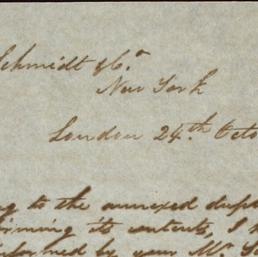 Schmidt & Co.
New York
London 24th Octo
ng to the annexed dup
irming its contents, I
informed by your Mr. S